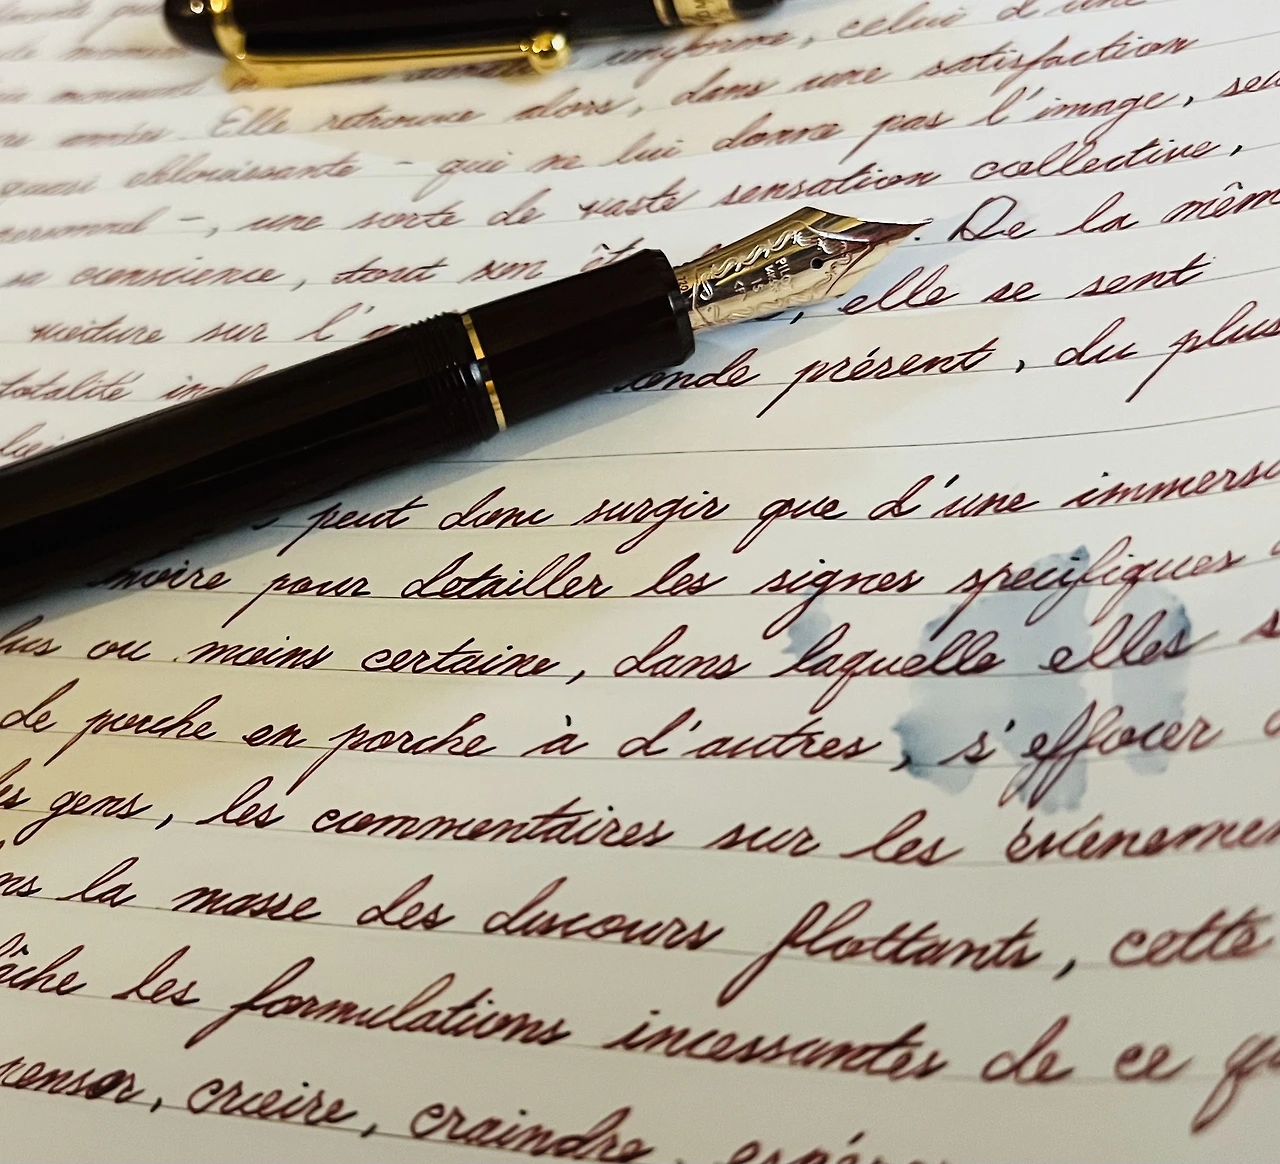 uniforme, celui d'une
moment
Elle retrouve alors, dans une satisfaction
quasi éblouissante - qui ne lui donne pas l'image, seule
personnel -, une sorte de vaste sensation collective,
sa conscience, tout son êt . De la même
voiture sur l' , elle se sent
totalité ind monde présent, du plus
PILOT
peut donc surgir que d'une immersi
moire pour détailler les signes specifiques
lus ou moins certaine, dans laquelle elles s
de porche en porche à d'autres, s'efforcer
les gens, les commentaires sur les événemen
ns la masse des discours flottants, cette
lâche les formulations incessantes de ce qu
penser, croire, craindre, espére